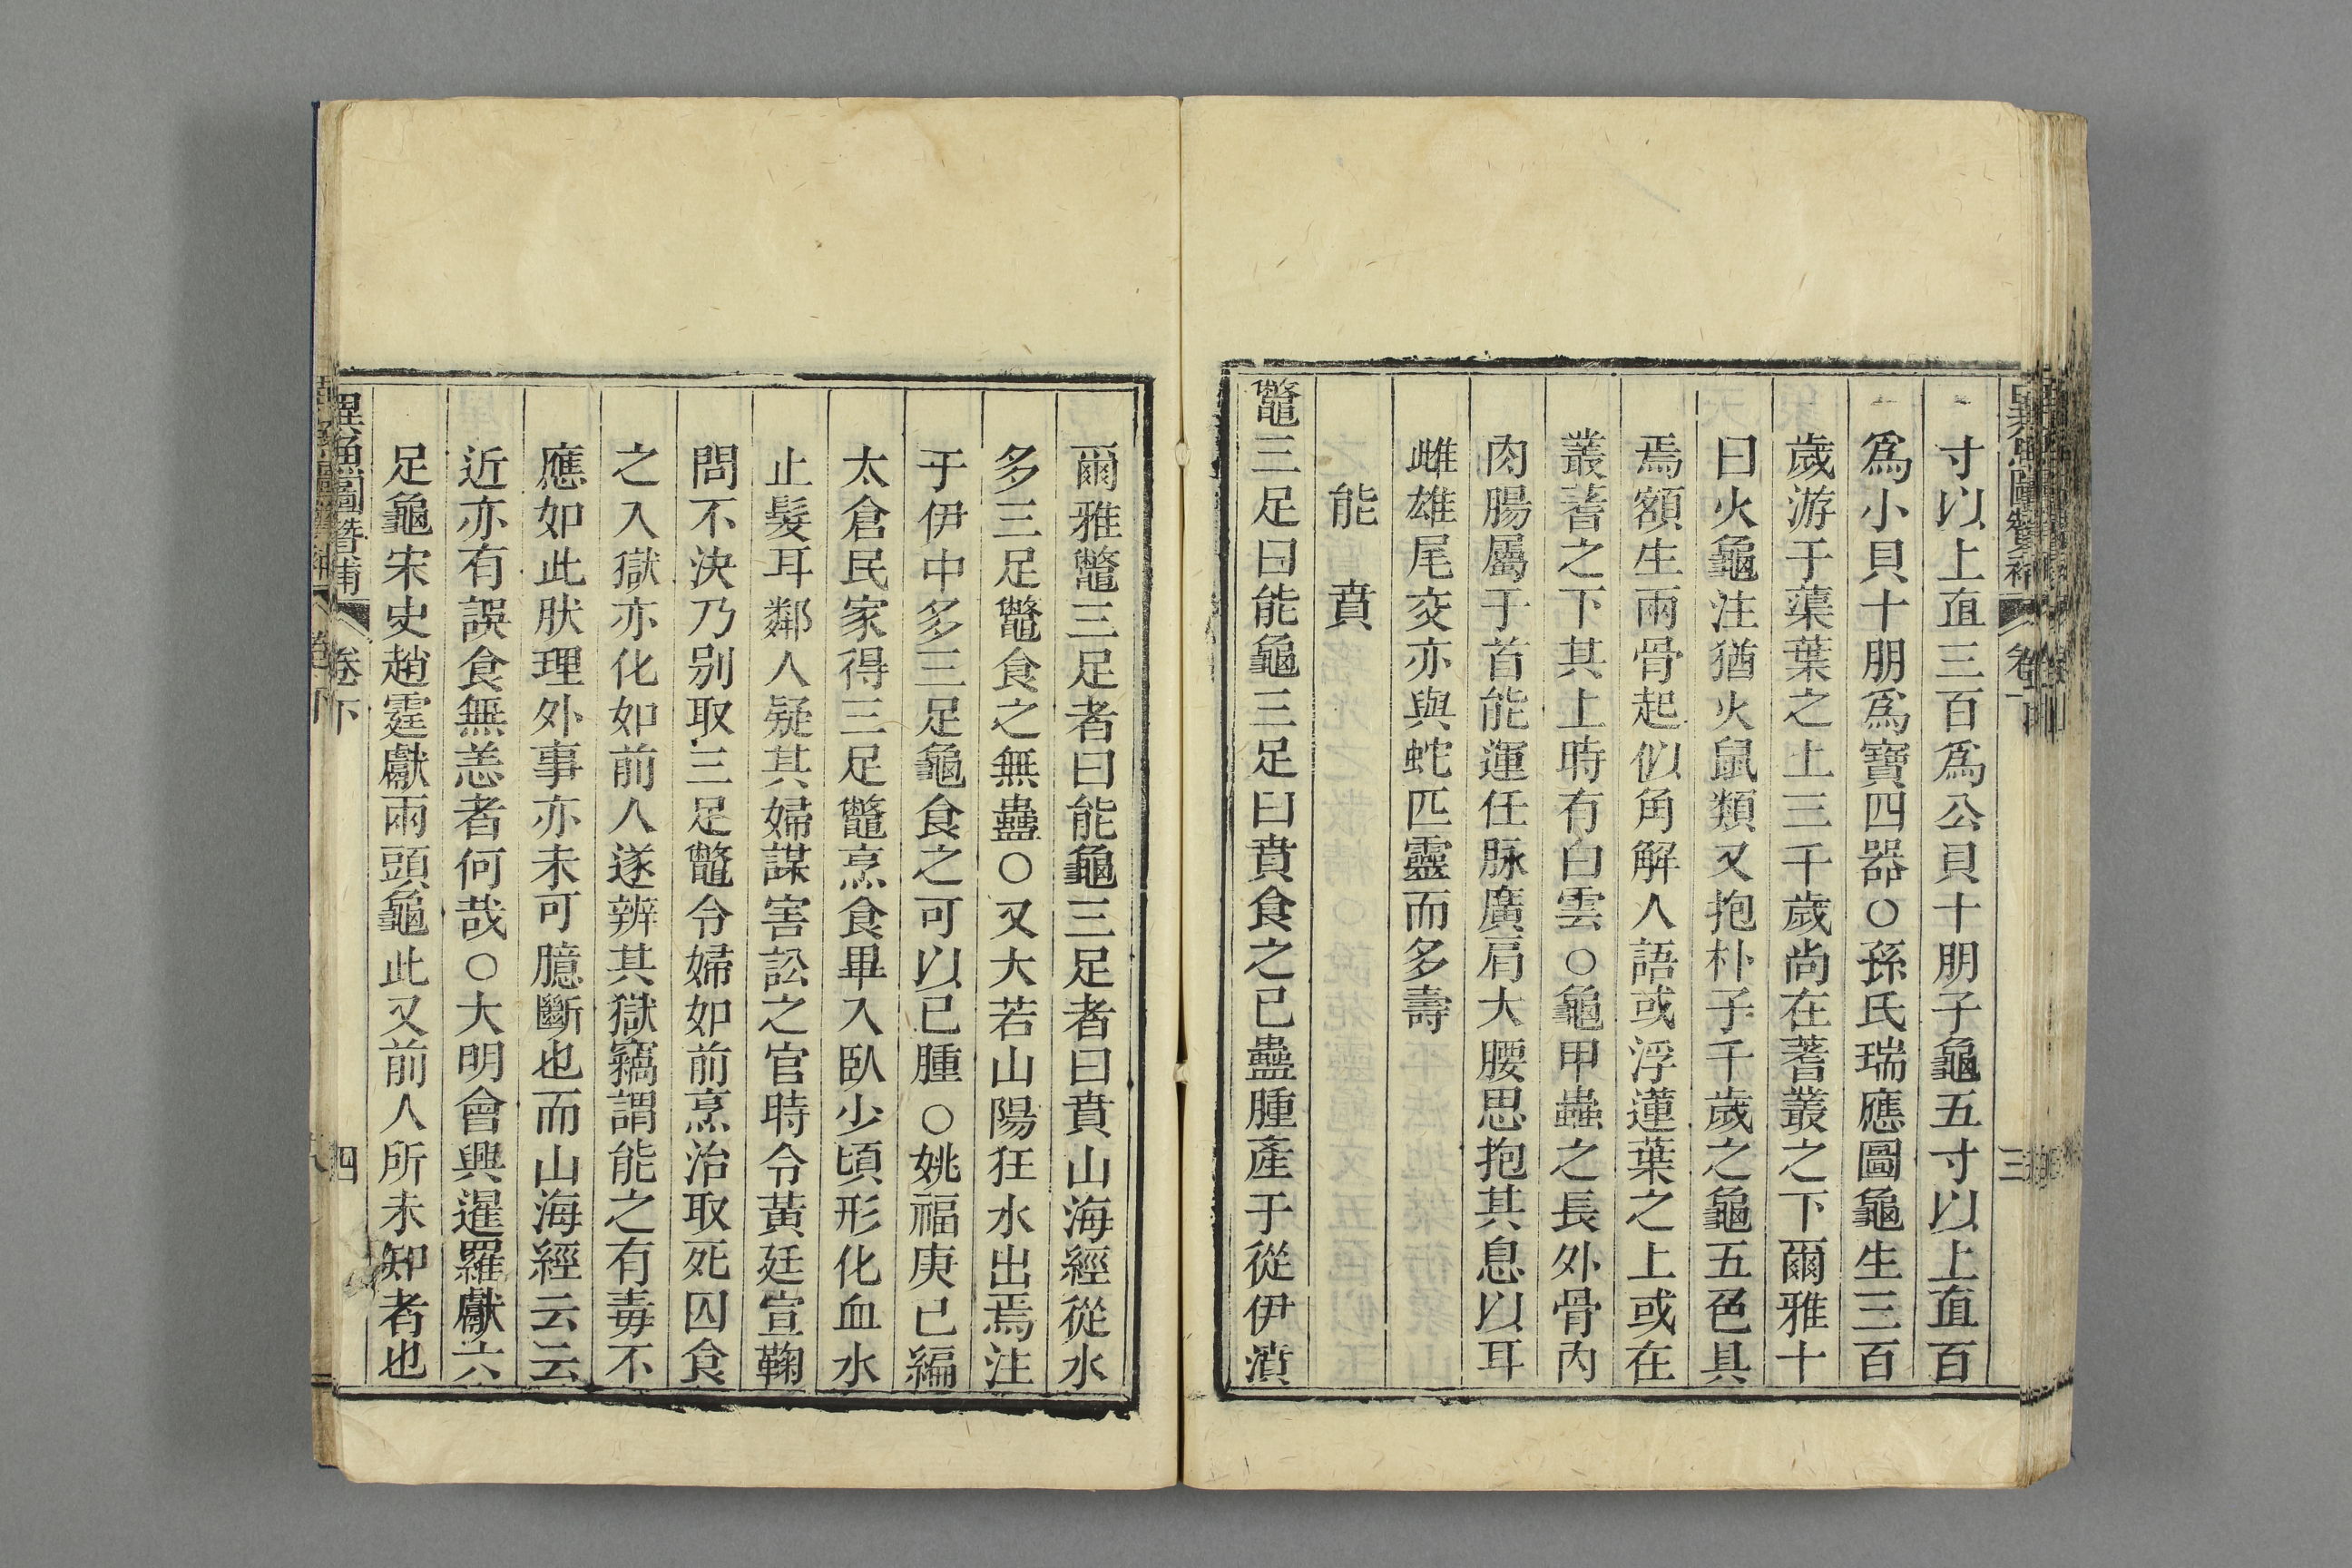 異魚圖贊補 卷下 三
寸以上直三百爲公貝十朋子龜五寸以上直百
爲小貝十朋爲寶四器○孫氏瑞應圖龜生三百
歲游于蕖葉之上三千歲尚在蓍叢之下爾雅十
曰火龜注猶火鼠類又抱朴子千歲之龜五色具
焉額生兩骨起似角解人語或浮蓮葉之上或在
叢蓍之下其上時有白雲○龜甲蟲之長外骨內
肉腸屬于首能運任脉廣肩大腰思抱其息以耳
雌雄尾交亦與蛇匹靈而多壽
能 賁
鼈三足曰能龜三足曰賁食之已蠱腫產于從伊濆
爾雅鼈三足者曰能龜三足者曰賁山海經從水
多三足鼈食之無蠱○又大若山陽狂水出焉注
于伊中多三足龜食之可以已腫○姚福庚已編
太倉民家得三足鼈烹食畢入臥少頃形化血水
止髮耳鄰人疑其婦謀害訟之官時令黃廷宣鞠
問不決乃别取三足鼈令婦如前烹治取死囚食
之入獄亦化如前人遂辨其獄竊謂能之有毒不
應如此肰理外事亦未可臆斷也而山海經云云
近亦有誤食無恙者何哉○大明會典暹羅獻六
足龜宋史趙霆獻兩頭龜此又前人所未知者也
異魚圖贊補 卷下 四